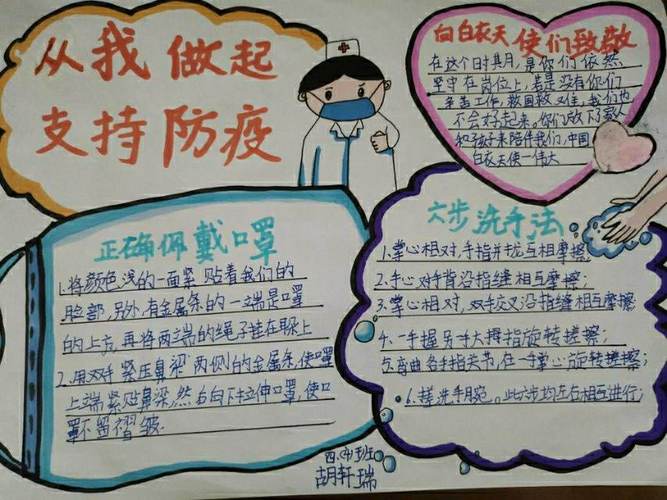 从我做起
支持防疫
白白衣天使们致敬
在这个日时具月,是你们依然
坚守在岗位上,若是没有你们
辛苦工作,救国救
不会好起来。你们放下了
和孩子来陪伴我们,中国
白衣天使一伟大
正确佩戴口罩
1.将颜色浅的一面紧贴着我们的
脸部,另外,有金属条的一端是口罩
的上方,再将两端的绳子挂在耳朵上
2.用双手紧压鼻梁两侧的金属条,使口罩
上端紧贴鼻梁,然后向下拉伸口罩,使口
罩不留褶皱
六步洗手法
1.掌心相对,手指并拢互相摩擦;
2.手心对手背沿指缝相互摩擦;
3.掌心相对,双手交叉沿指缝相互摩擦
4.一手握另一手大拇指旋转搓擦;
5.弯曲各手指关节,在一手掌心旋转搓擦;
6.搓洗手腕。此六步均左右相互进行;
四.(4)班
胡轩瑞